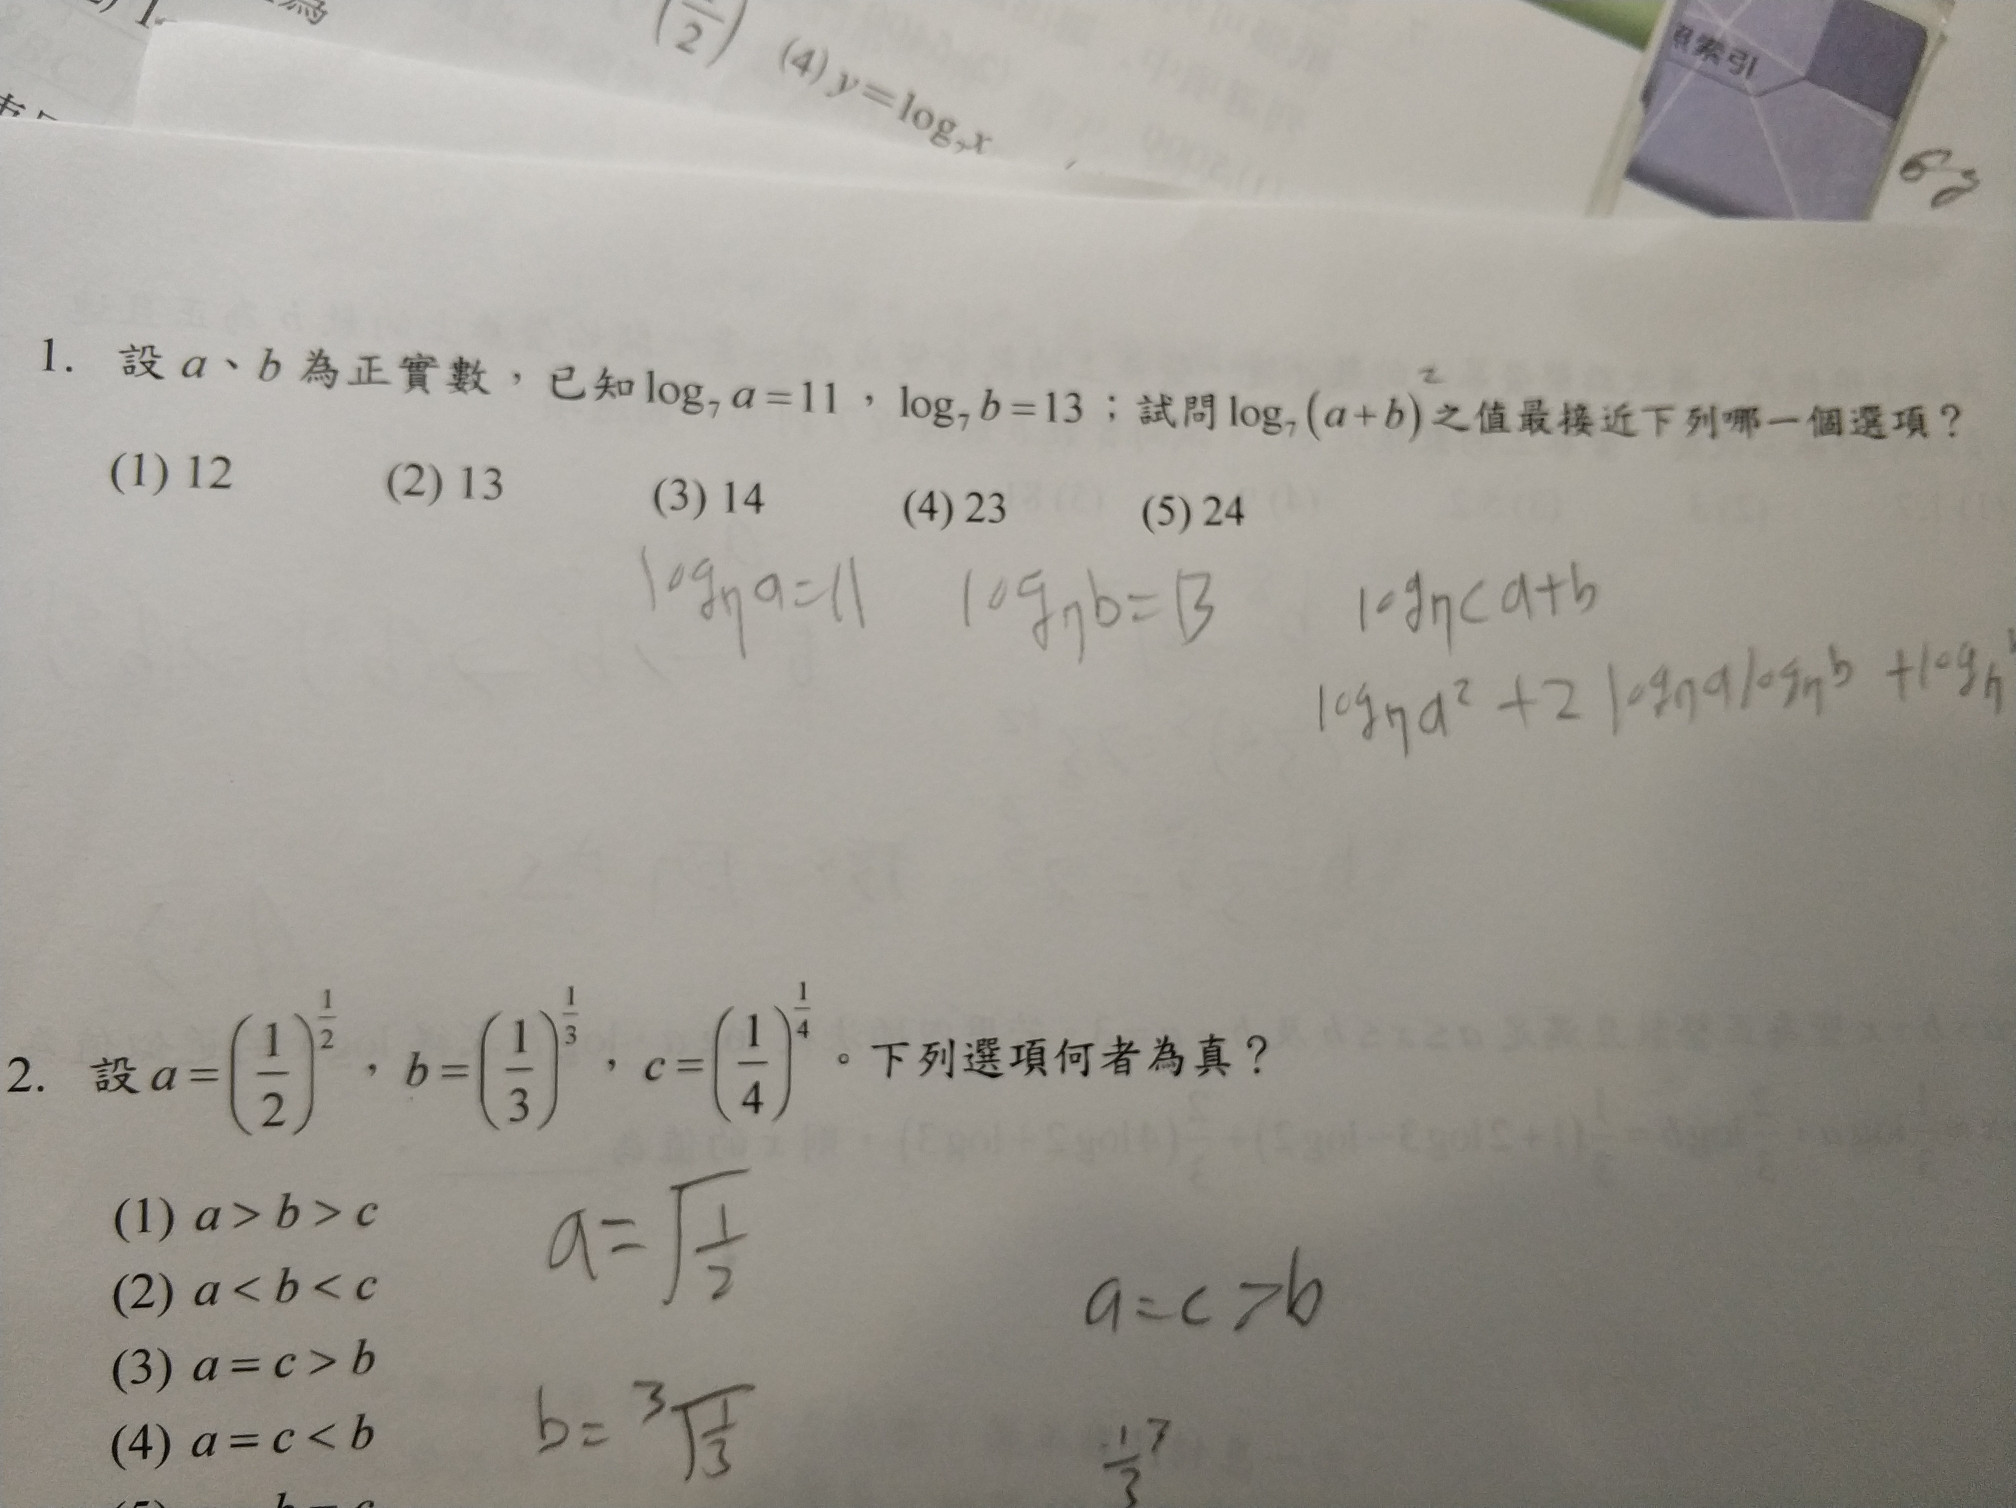 (4) y=log₇x
索引
1. 設 a、b 為正實數，已知 log₇ a=11，log₇ b=13；試問 log₇(a+b)² 之值最接近下列哪一個選項？
(1) 12 (2) 13 (3) 14 (4) 23 (5) 24
log₇a=11 log₇b=13 log₇(a+b
log₇a²+2log₇alog₇b+log₇
2. 設 a=(1/2)^(1/2)，b=(1/3)^(1/3)，c=(1/4)^(1/4)。下列選項何者為真？
(1) a>b>c
a=√(1/2)
(2) a<b<c
a=c>b
(3) a=c>b
(4) a=c<b
b=³√(1/3)